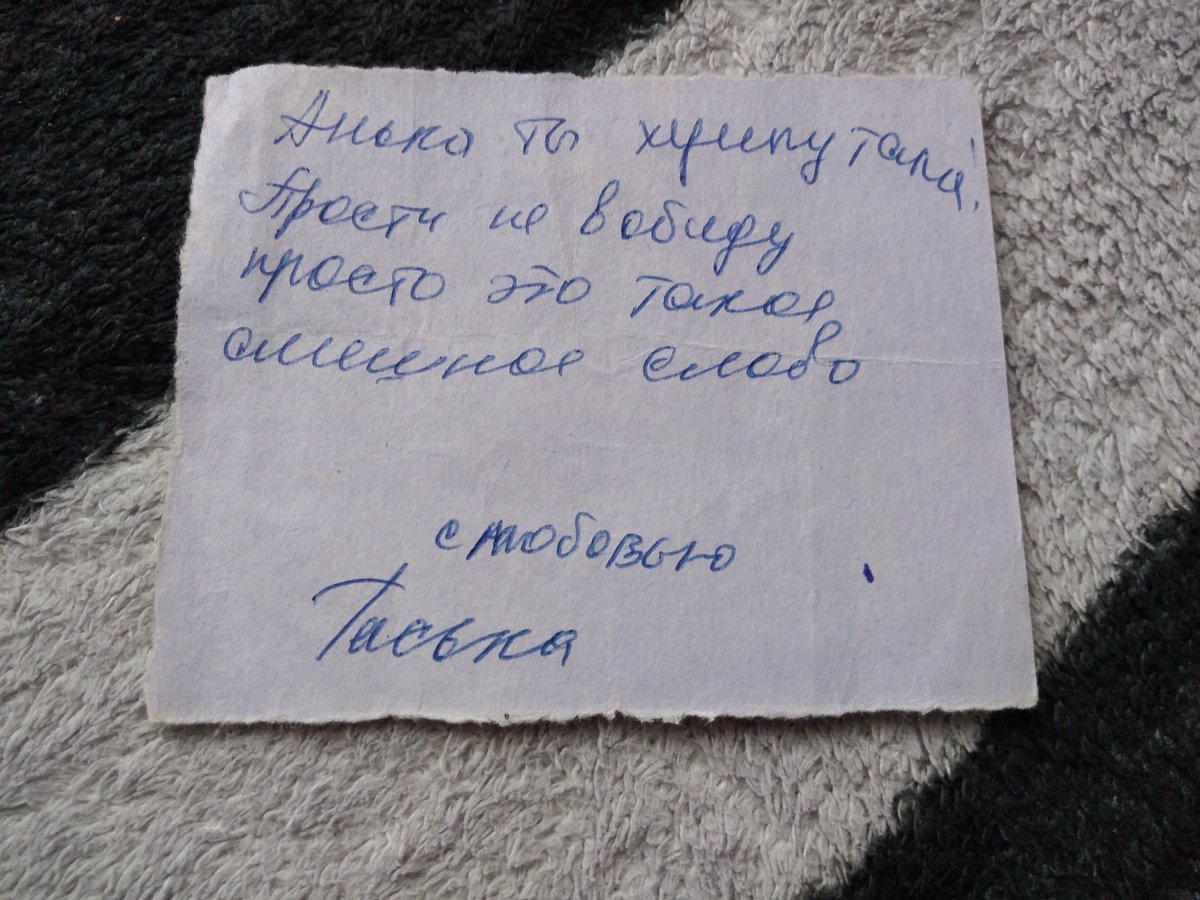 Анька ты хуипутала!
Прости не в обиду
просто это такое
смешное слово
с любовью
Таська